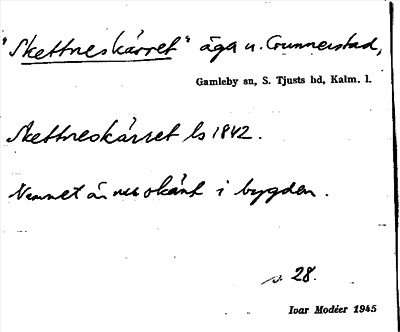 "Skettneskärret" äga u. Gunnerstad,
Gamleby sn, S. Tjusts hd, Kalm. l.
Skettneskärret ls 1842.
Namnet är nu okänt i bygden.
s. 28.
Ivar Modéer 1945